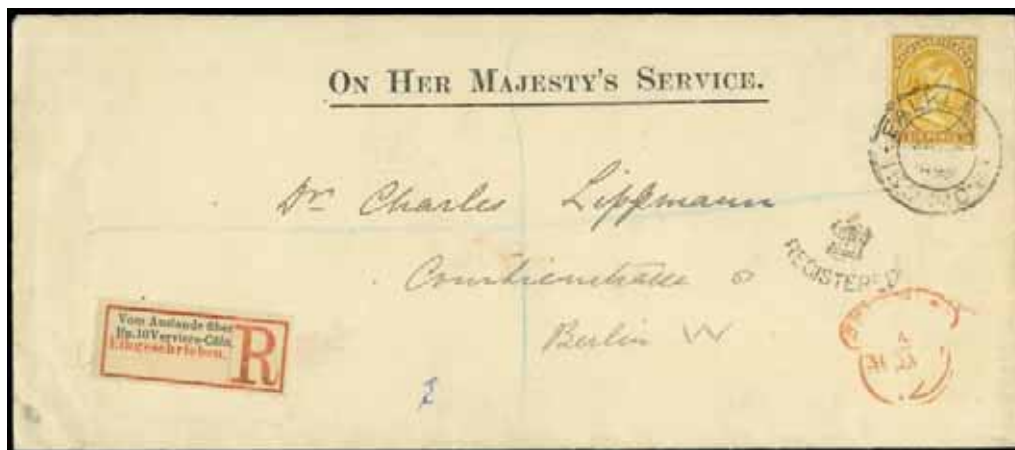 ON HER MAJESTY'S SERVICE.
Dr Charles Lippmann
Berlin W
REGISTERED
Vom Auslande über
Bp.10 Verviers-Cöln.
Eingeschrieben.
R